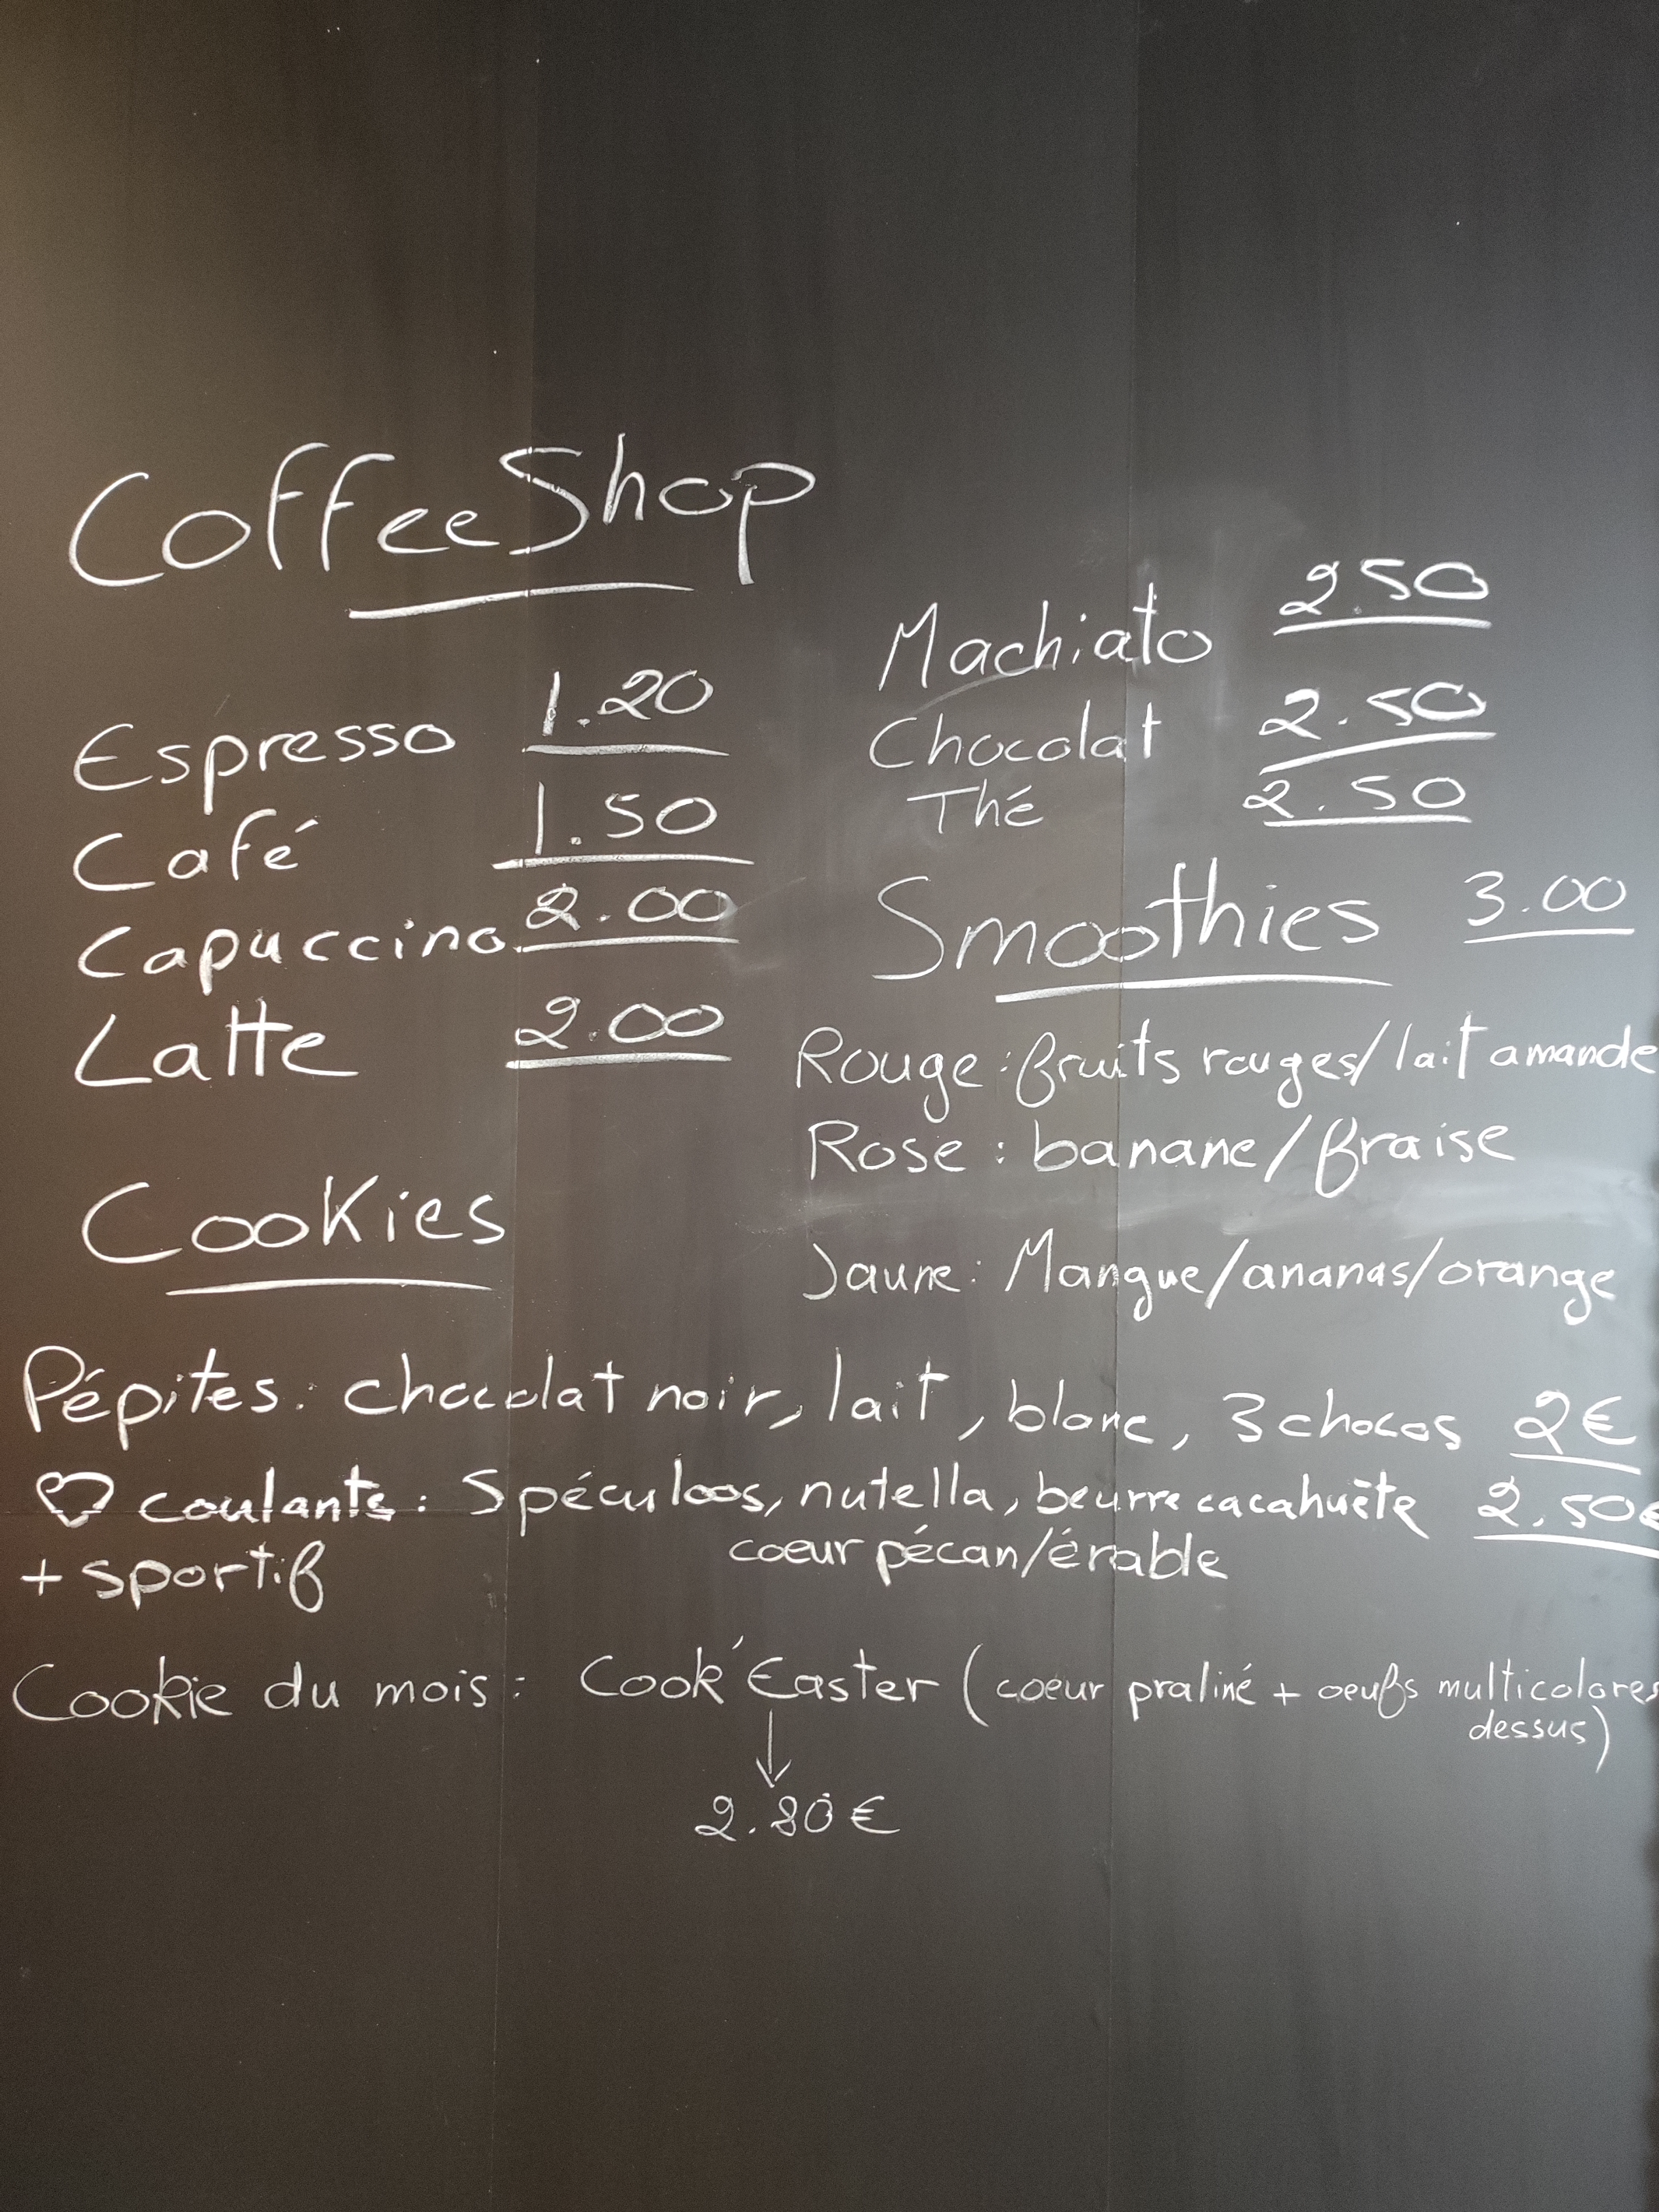 CoffeeShop
Espresso 1.20
Café 1.50
Capuccino 2.00
Latte 2.00
Machiato 2.50
Chocolat 2.50
Thé 2.50
Smoothies 3.00
Rouge : fruits rouges/lait amande
Rose : banane/fraise
Jaune : Mangue/ananas/orange
Cookies
Pépites : chocolat noir, lait, blanc, 3 chocos 2€
♡ coulants : Spéculoos, nutella, beurre cacahuète 2.50€
+ sportif coeur pécan/érable
Cookie du mois : Cook'Easter (coeur praliné + oeufs multicolores
dessus)
↓
2.80€